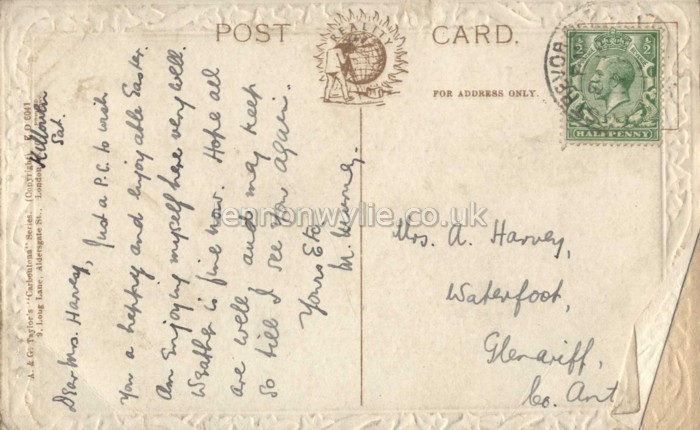 POST CARD.
REALITY
FOR ADDRESS ONLY.
HALFPENNY
½ ½
TREVOR
A. & G. Taylor's "Carbontona" Series. (Copyright)
9, Long Lane, Aldersgate St., London
Sat.
Dear Mrs. Harvey, Just a P.C. to wish
you a happy and enjoyable Easter.
Am enjoying myself here very well.
Weather is fine now. Hope all
are well and may keep
so till I see you again.
Yours Etc
M.
Mrs. A. Harvey,
Waterfoot,
Glenariff,
Co. Ant.
lennonwylie.co.uk